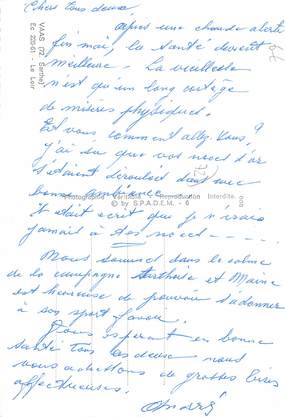 Chers tous deux.
après une chaude alerte
fin mai, la santé devient
meilleure. La vieillesse
n'est qu'un long cortège
de misères physiques.
Et vous comment allez-vous ?
j'ai su que vos noces d'or
s'étaient déroulées dans une
bonne ambiance
il était écrit que je n'irais
jamais à vos noces - - - -
Nous sommes dans le calme
de la campagne et
est heureuse de pouvoir s'adonner
à son sport favori.
Vous espérant en bonne
santé tous les deux nous
vous adressons de grosses bises
affectueuses.
André
VAAS (72 - Sarthe)
- Le Loir
Photographie Reproduction Interdite
© by S.P.A.D.E.M. - 6